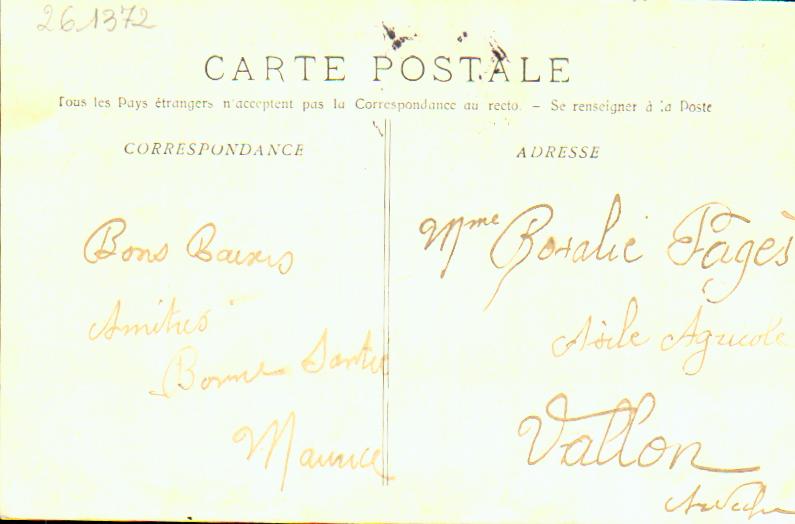 261372
CARTE POSTALE
Tous les Pays étrangers n'acceptent pas la Correspondance au recto. – Se renseigner à la Poste
CORRESPONDANCE
ADRESSE
Bons Baisers
Amitiés
Bonne Santée
Maurice
Mme Rosalie Fagès
Asile Agricole
Vallon
Ardèche